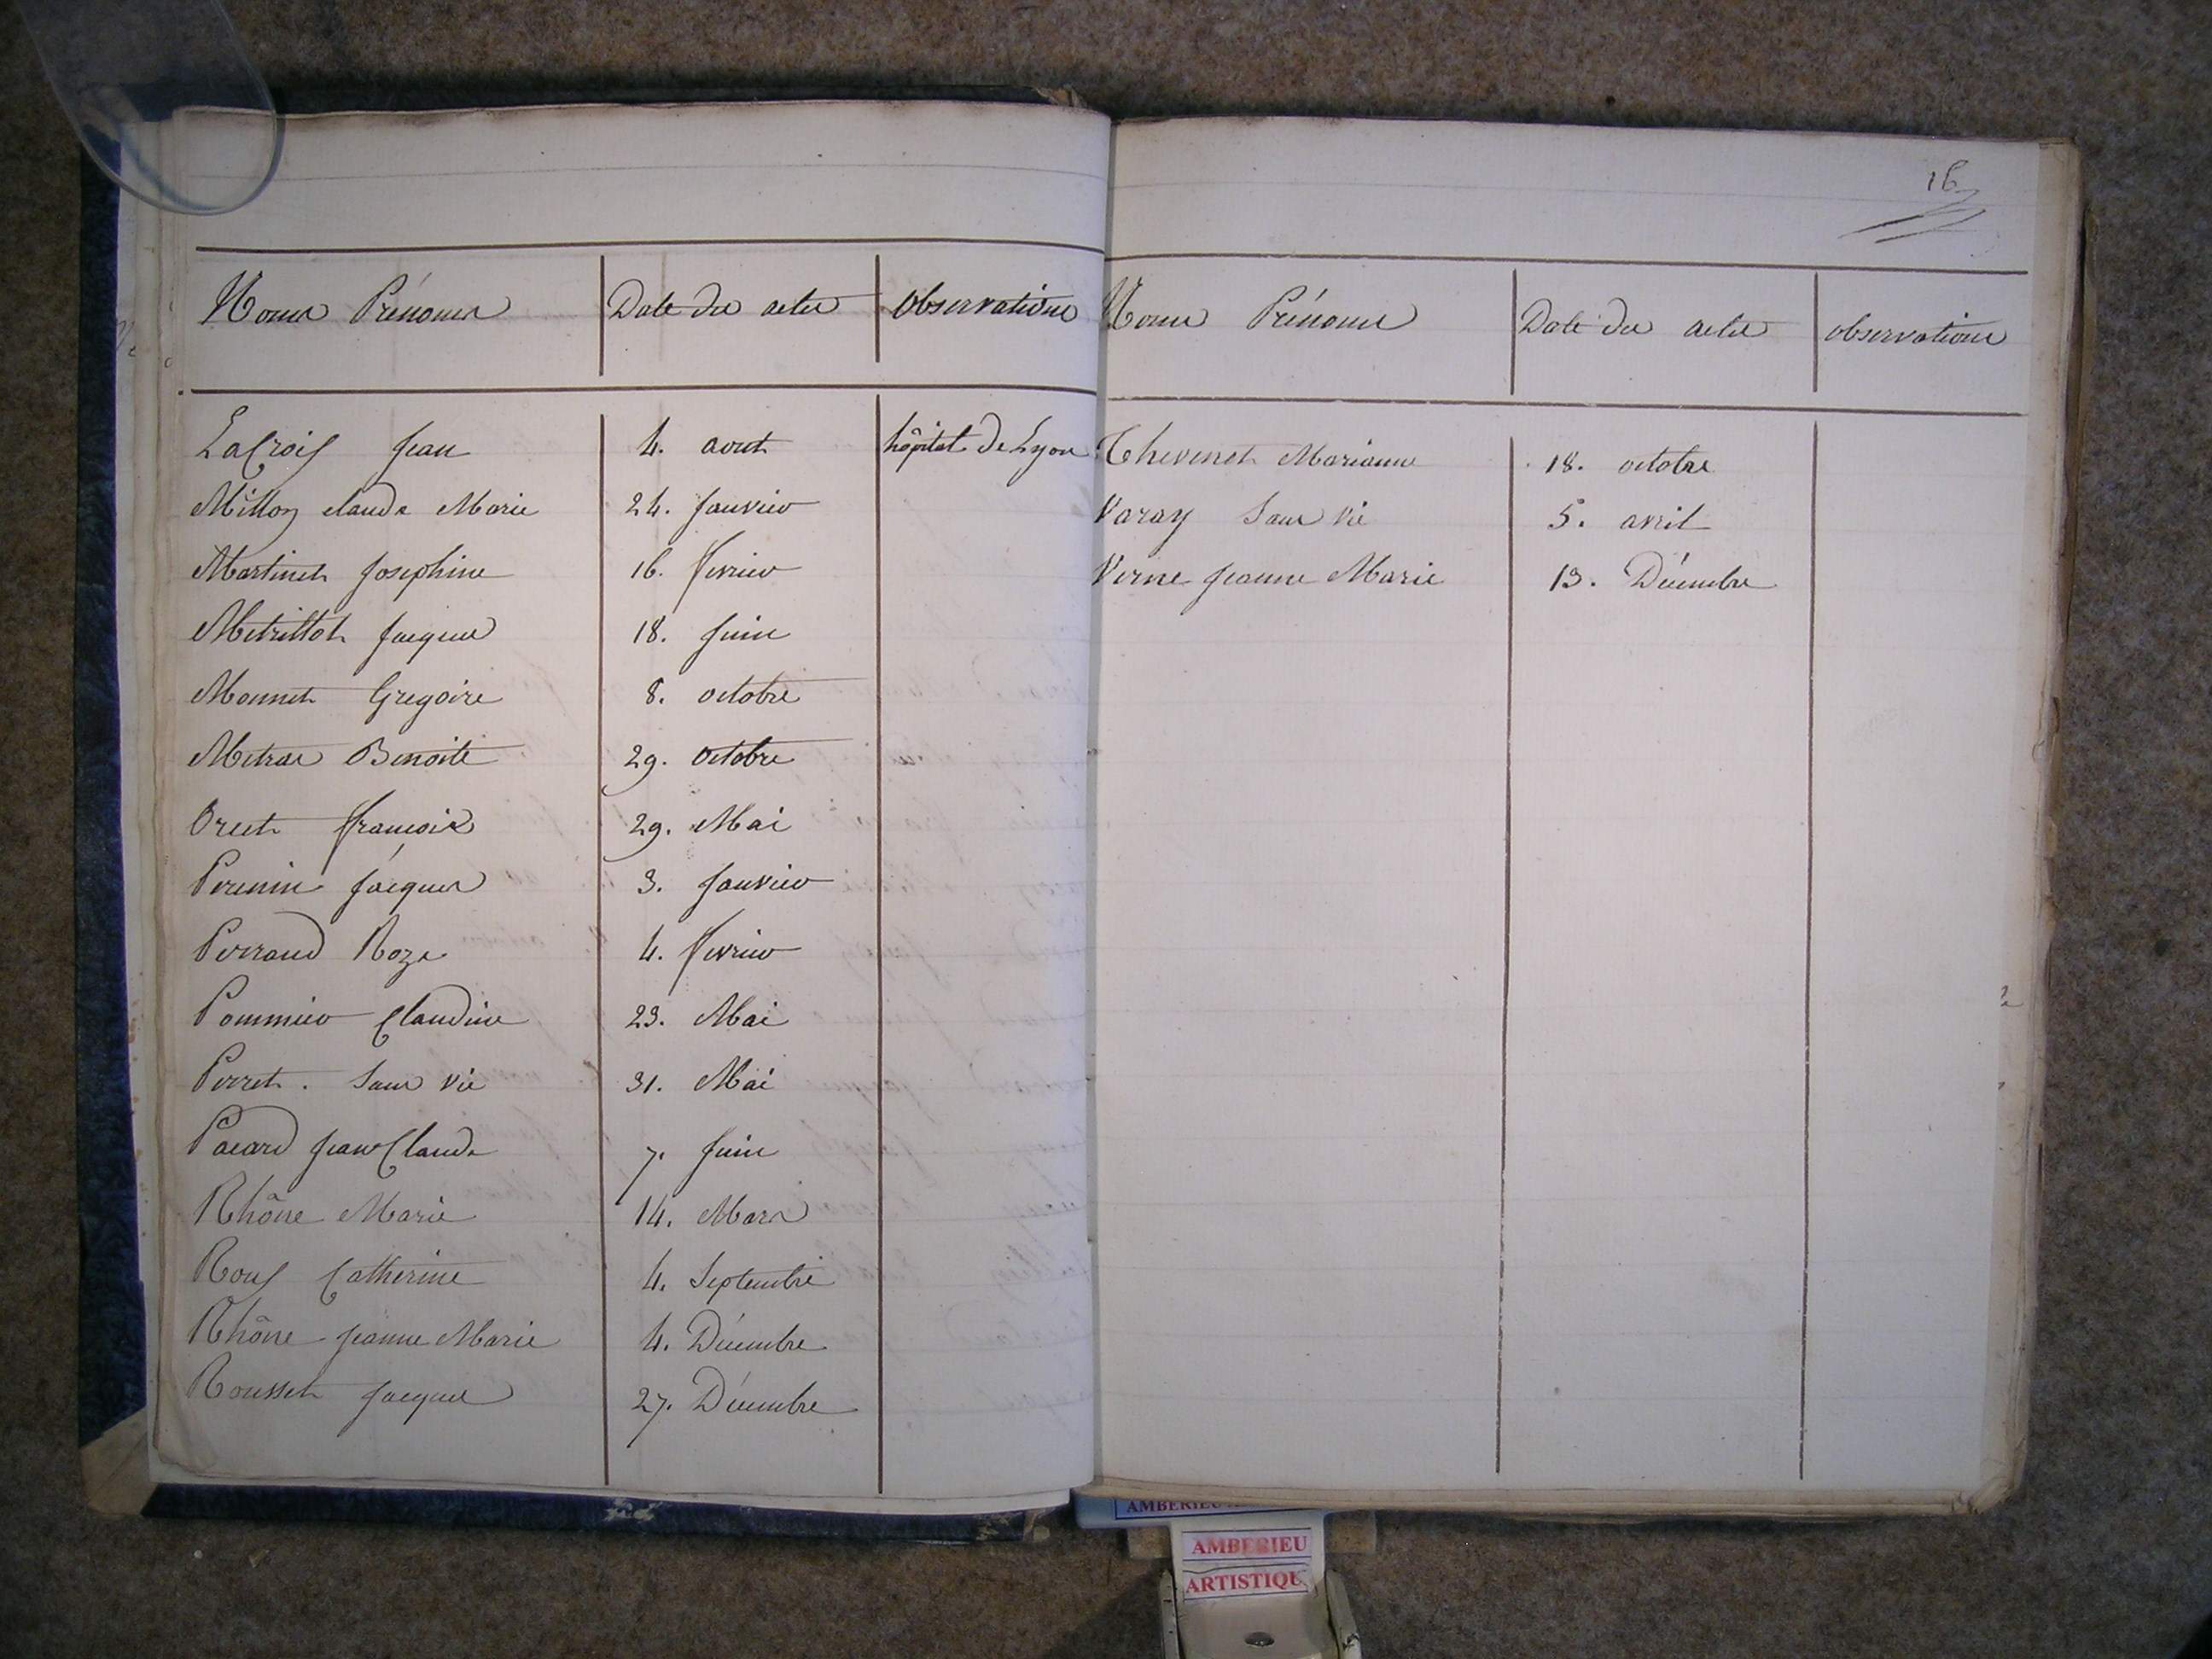 Noms Prénoms Date des actes Observations
LaCroix Jean 4. aout hôpital de Lyon
Millon claude Marie 24. Janvier
Martinet Josephine 16. fevrier
Metrillot Jacques 18. Juin
Monnet Gregoire 8. octobre
Metras Benoite 29. octobre
Orcet françois 29. Mai
Perenin Jacques 3. Janvier
Perraud Roze 4. fevrier
Pommier Claudine 23. Mai
Perret. Sans vie 31. Mai
Pacard Jean Claude 7. Juin
Rhône Marie 14. Mars
Roux Catherine 4. Septembre
Rhône Jeanne Marie 4. Décembre
Rousset Jacques 27. Décembre
16
Noms Prénoms Date des actes observations
Thevenet Marianne 18. octobre
Varay Sans vie 5. avril
Verne Jeanne Marie 13. Décembre
AMBERIEU
AMBERIEU
ARTISTIQU